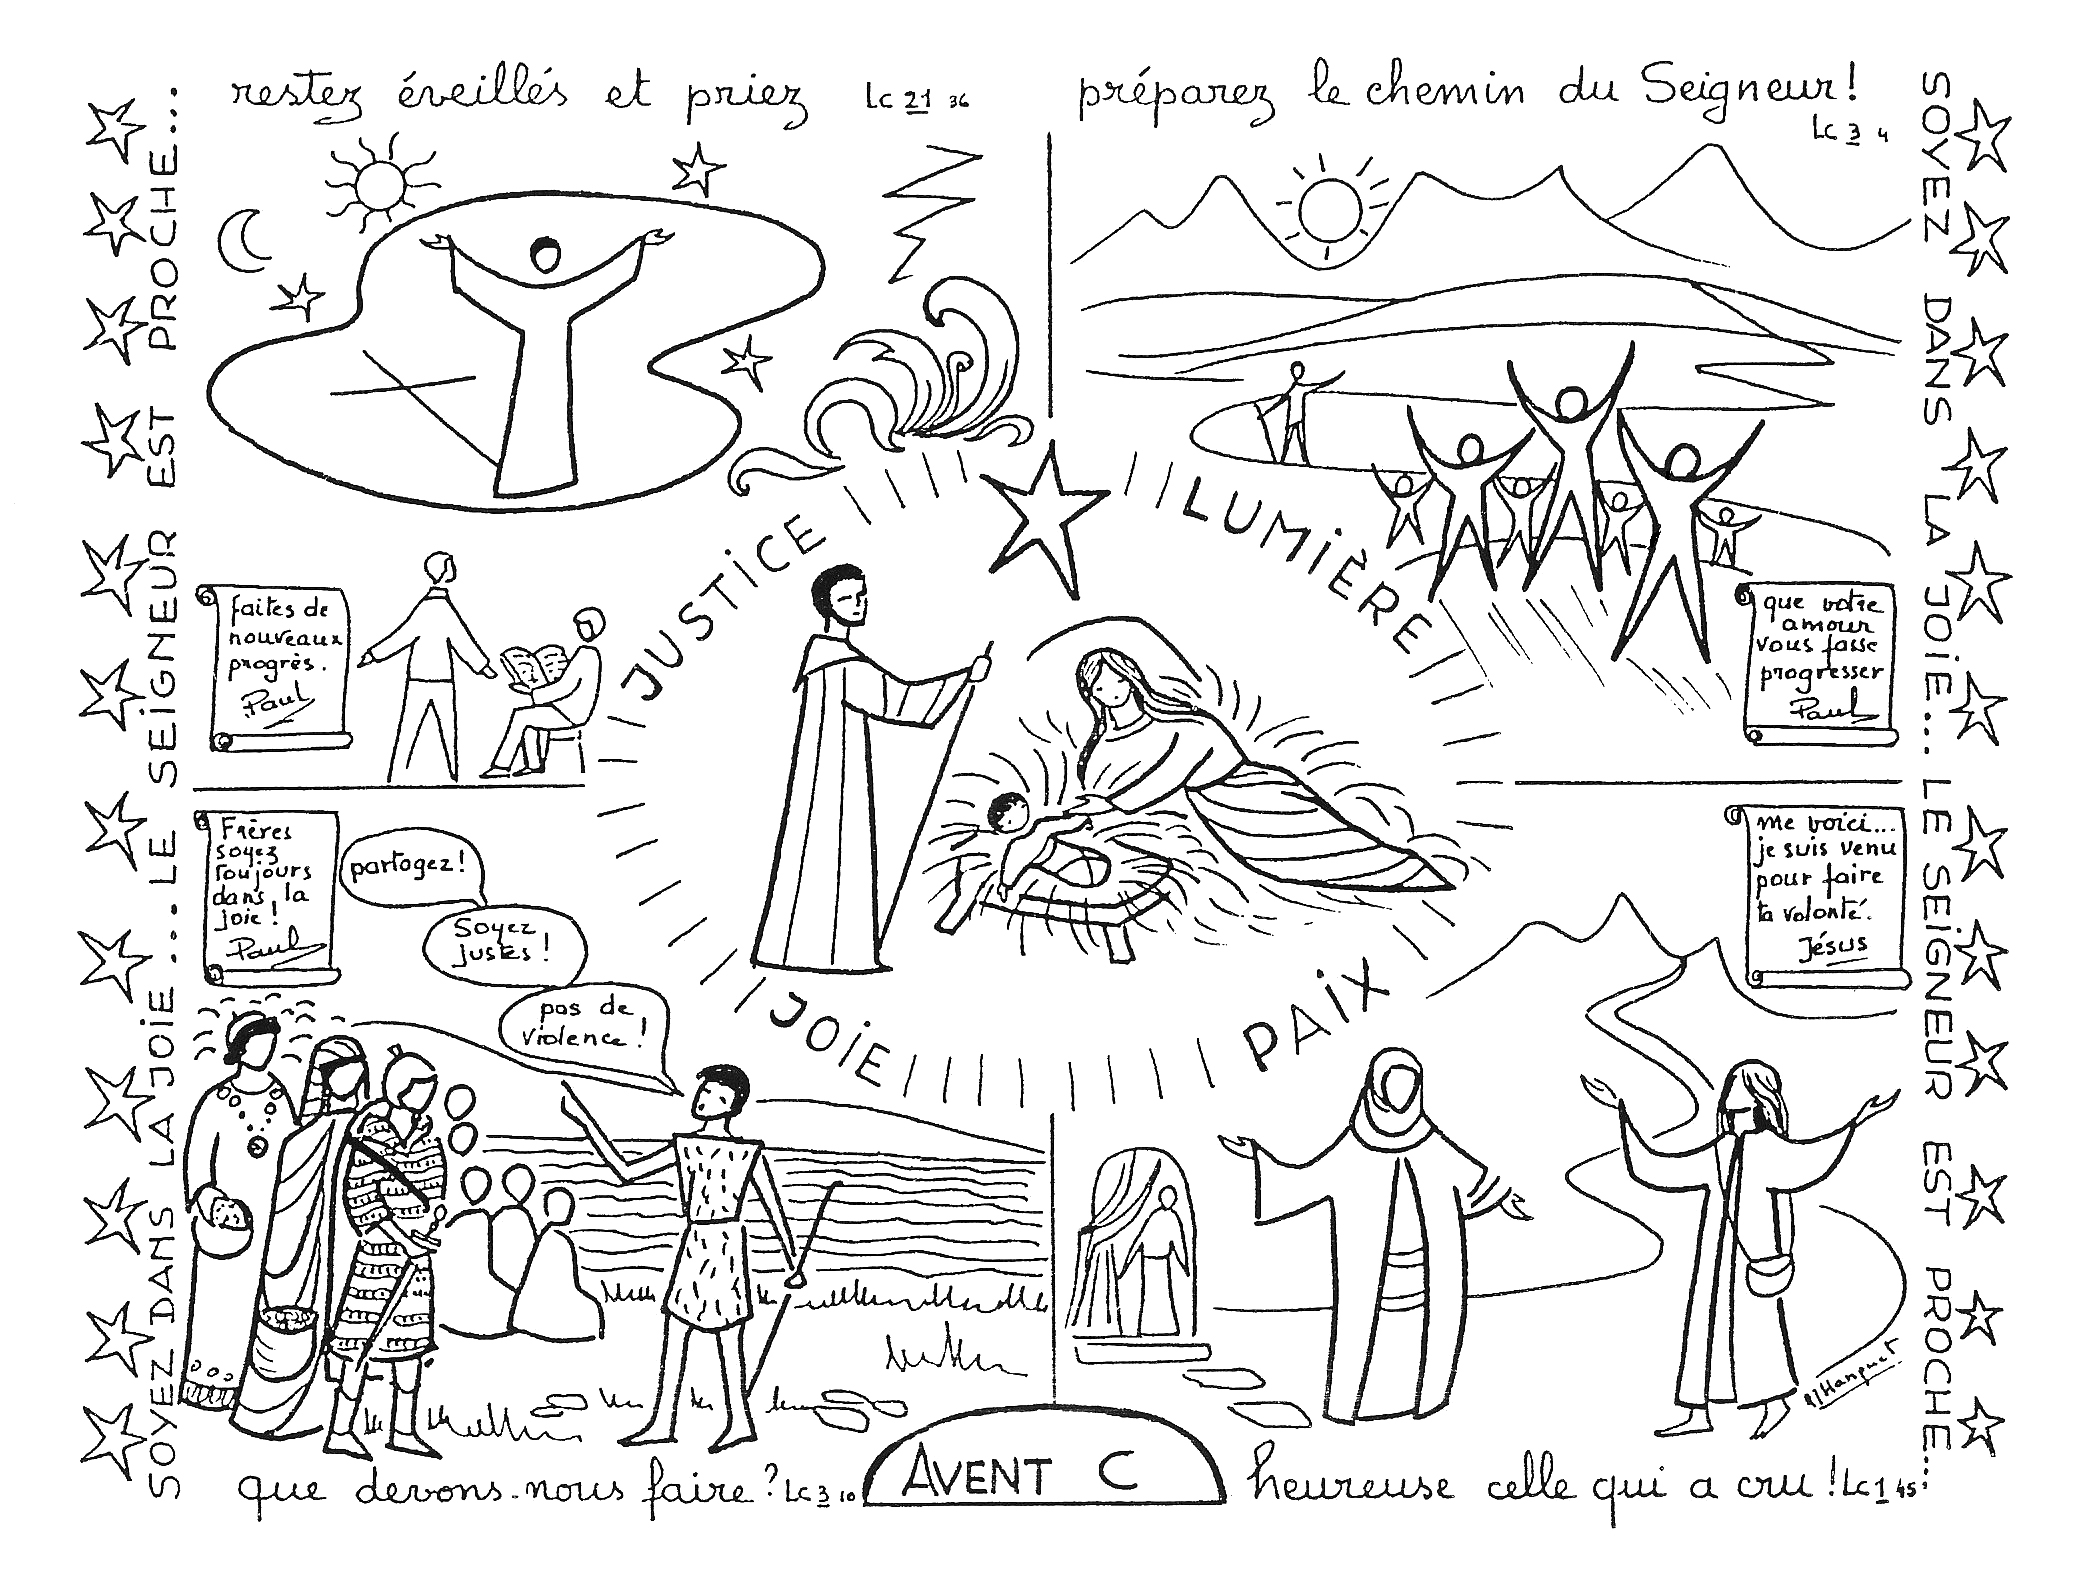 restez éveillés et priez Lc 21 36
préparez le chemin du Seigneur!
Lc 3 4
SOYEZ DANS LA JOIE... LE SEIGNEUR EST PROCHE...
SOYEZ DANS LA JOIE... LE SEIGNEUR EST PROCHE...
JUSTICE
LUMIÈRE
faites de
nouveaux
progrès.
Paul
que votre
amour
vous fasse
progresser
Paul
Frères
soyez
toujours
dans la
joie!
Paul
partagez!
Soyez
justes!
pas de
violence!
me voici...
je suis venu
pour faire
ta volonté.
Jésus
JOIE
PAIX
que devons-nous faire? Lc 3 10
AVENT C
heureuse celle qui a cru! Lc 1 45